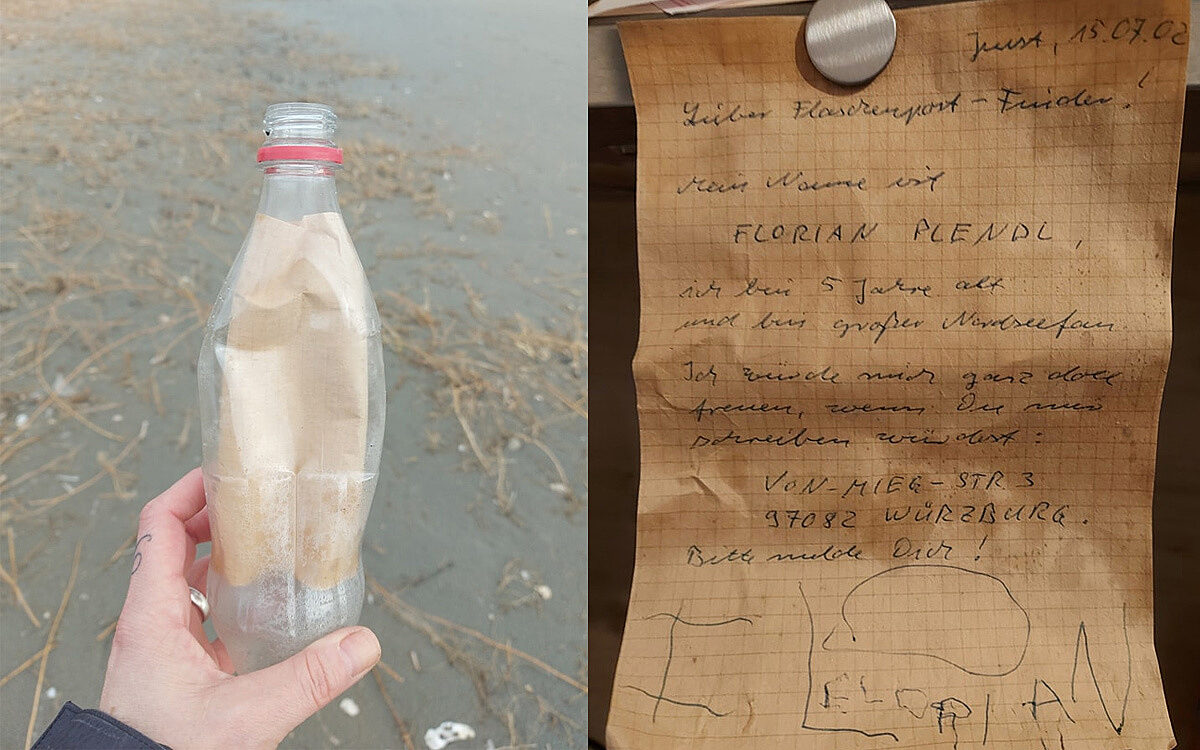 Juist, 15.07.02
Lieber Flaschenpost-Finder!
mein Name ist
FLORIAN PLENDL,
ich bin 5 Jahre alt
und bin großer Nordseefan.
Ich würde mich ganz doll
freuen, wenn Du mir
schreiben würdest:
VON-MIEG-STR 3
97082 WÜRZBURG.
Bitte melde Dich!
FLORIAN